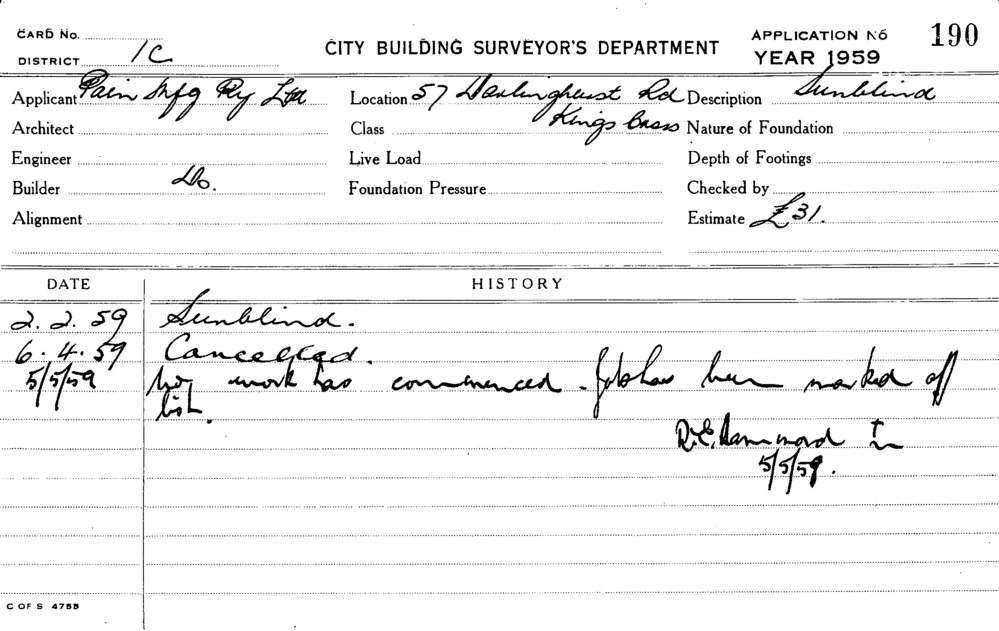 CARD No.
DISTRICT 1C
CITY BUILDING SURVEYOR'S DEPARTMENT
APPLICATION No 190
YEAR 1959
Applicant Pain Mfg Py Ltd
Location 57 Darlinghurst Rd
Kings Cross
Description Sunblind
Architect
Class
Nature of Foundation
Engineer
Live Load
Depth of Footings
Builder Do.
Foundation Pressure
Checked by
Alignment
Estimate £31.
DATE
HISTORY
2.2.59 Sunblind.
6.4.59 Cancelled.
5/5/59 work has commenced. Job has been marked off
list.
R.E. Hammond
5/5/59.
C OF S 4755